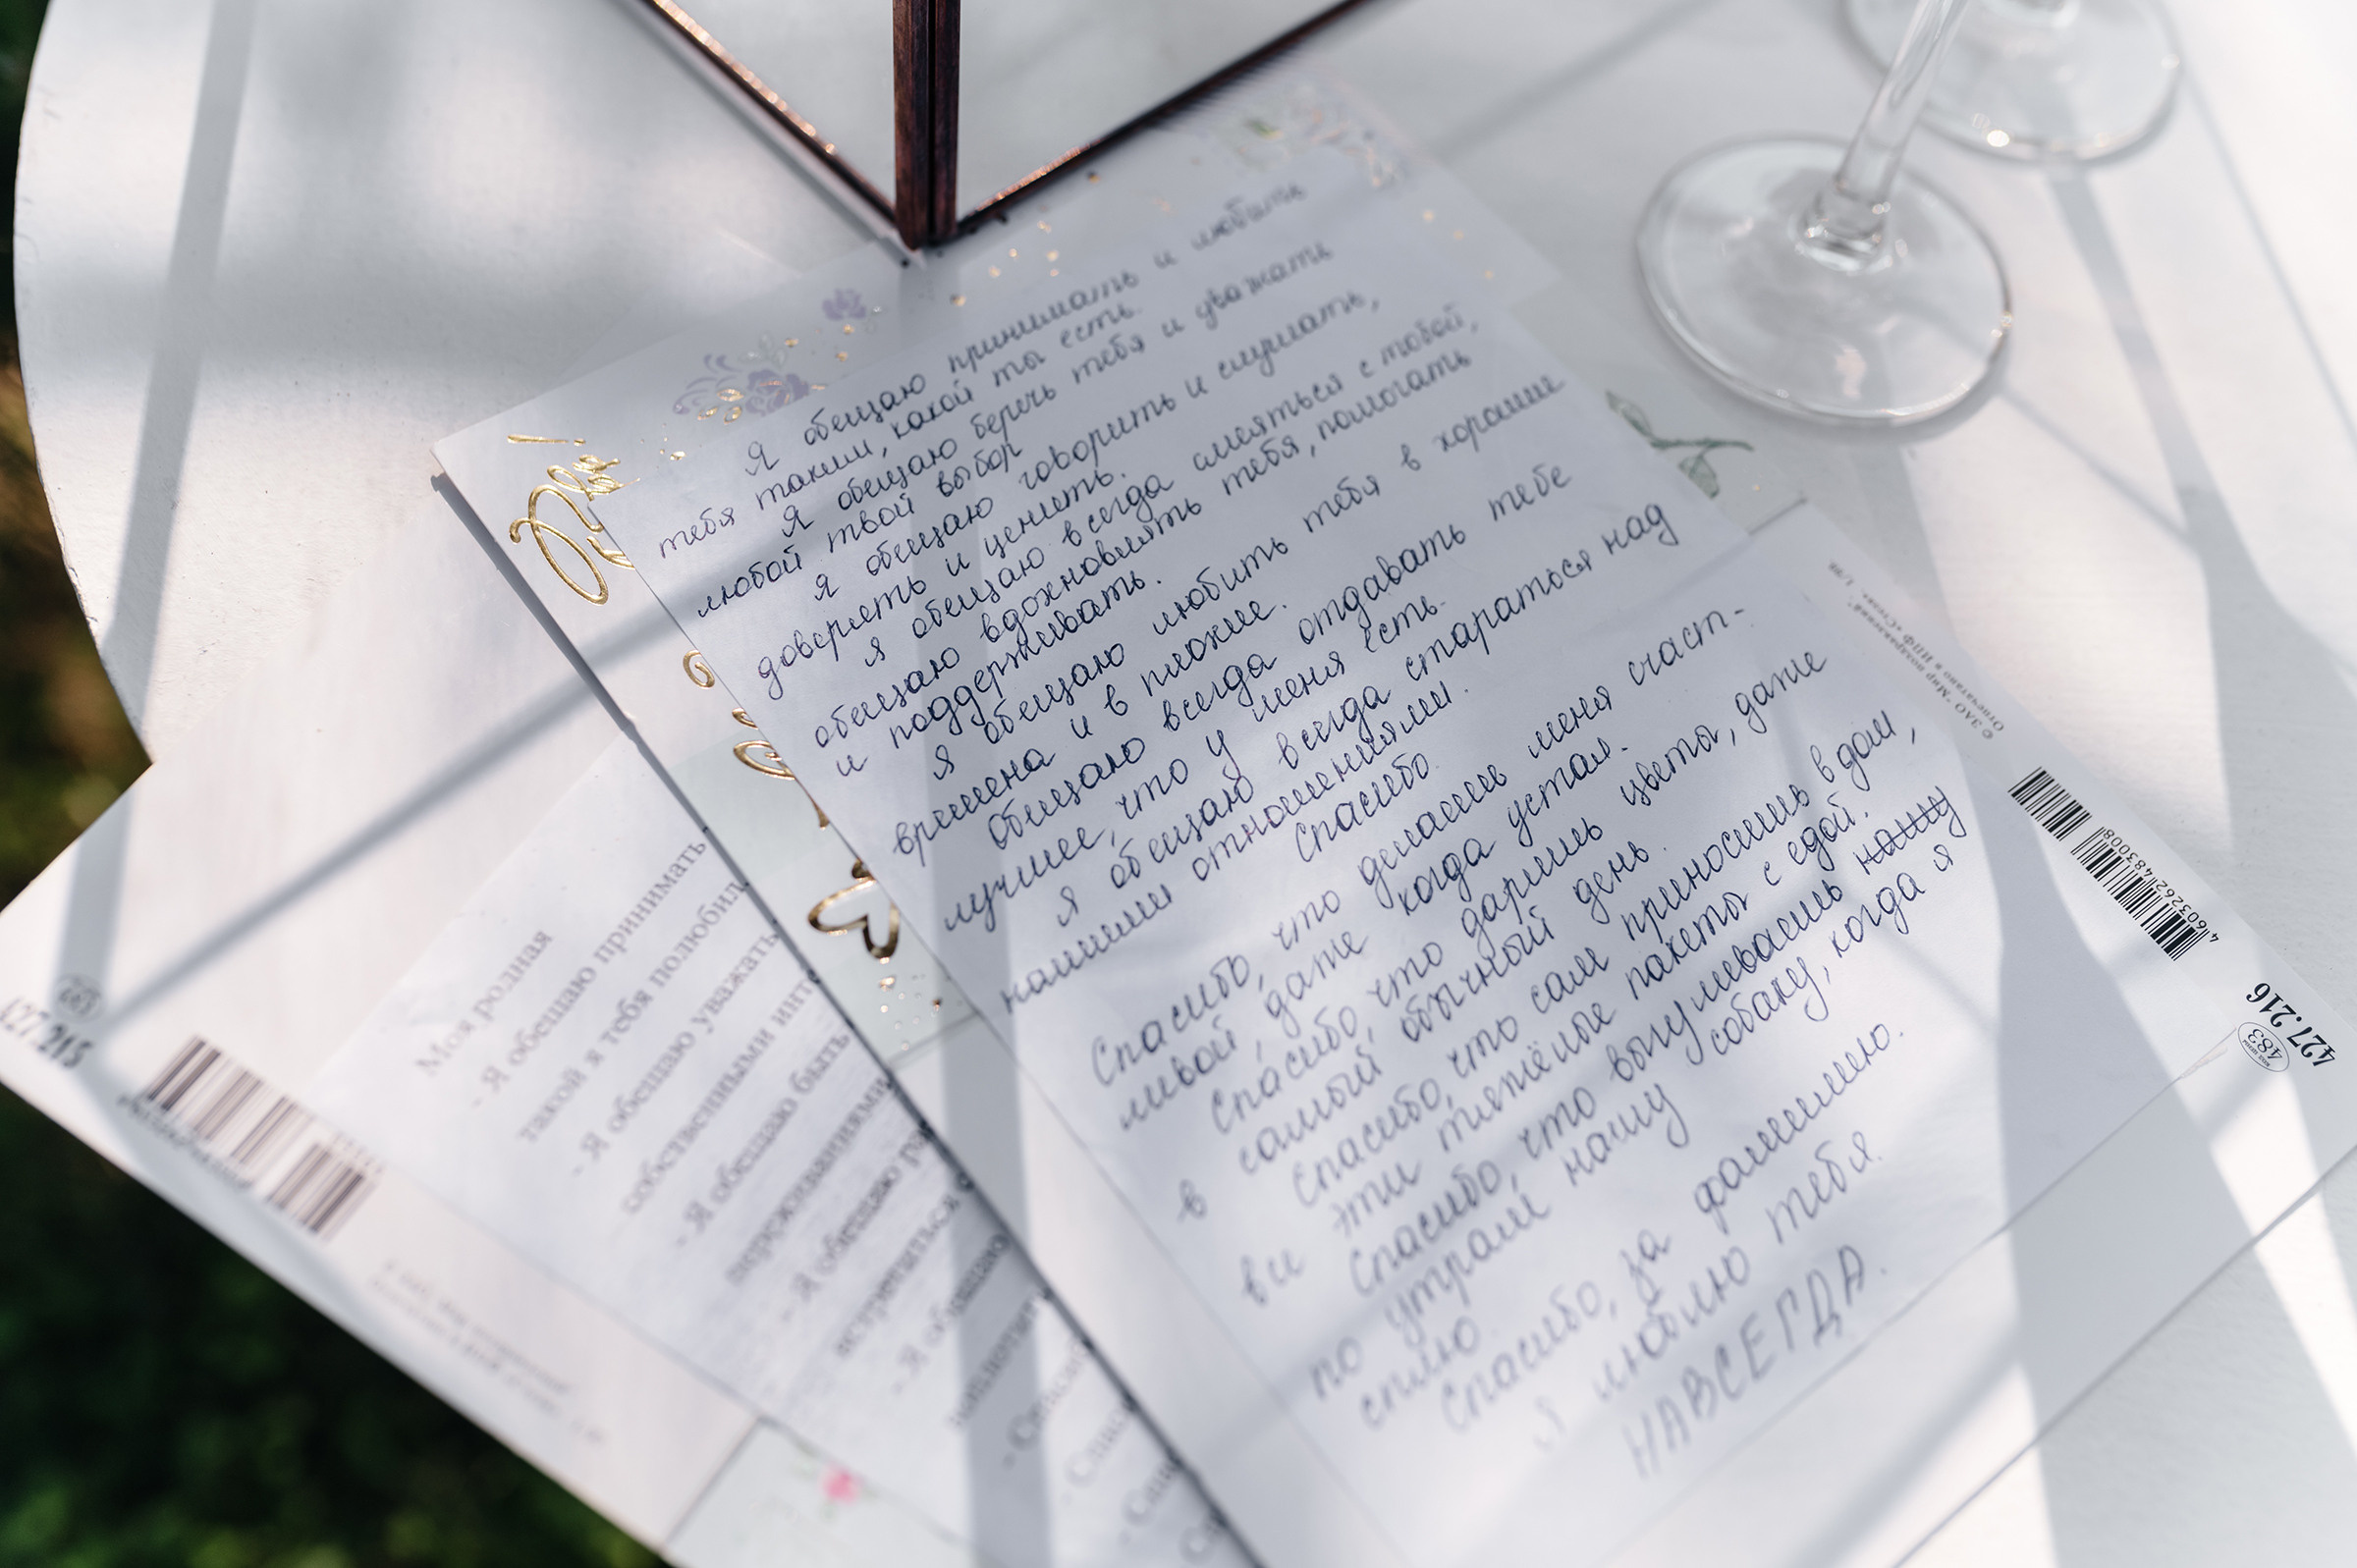 Я обещаю принимать и любить
тебя таким, какой ты есть.
Я обещаю беречь тебя и уважать
любой твой выбор
Я обещаю говорить и слушать,
доверять и ценить.
Я обещаю всегда смеяться с тобой,
обещаю вдохновлять тебя, помогать
и поддерживать.
Я обещаю любить тебя в хорошие
времена и в плохие.
Обещаю всегда отдавать тебе
лучшее, что у меня есть.
Я обещаю всегда стараться над
нашими отношениями.
Спасибо.
Спасибо, что делаешь меня счаст-
ливой, даже когда устал.
Спасибо, что даришь цветы, даже
в самый обычный день.
Спасибо, что сам приносишь в дом,
все эти тяжёлые пакеты с едой.
Спасибо, что выгуливаешь нашу
по утрам нашу собаку, когда я
сплю.
Спасибо, за фамилию.
Я люблю тебя.
НАВСЕГДА.
Моя родная
- Я обещаю принимать
такой я тебя полюбил
- Я обещаю уважать
собственными инт
- Я обещаю быть
переживаниями
- Я обещаю
встретиться с
- Я обещаю
© ЗАО "Мир поздравлений"
4603262483008
427.216
483
427.215